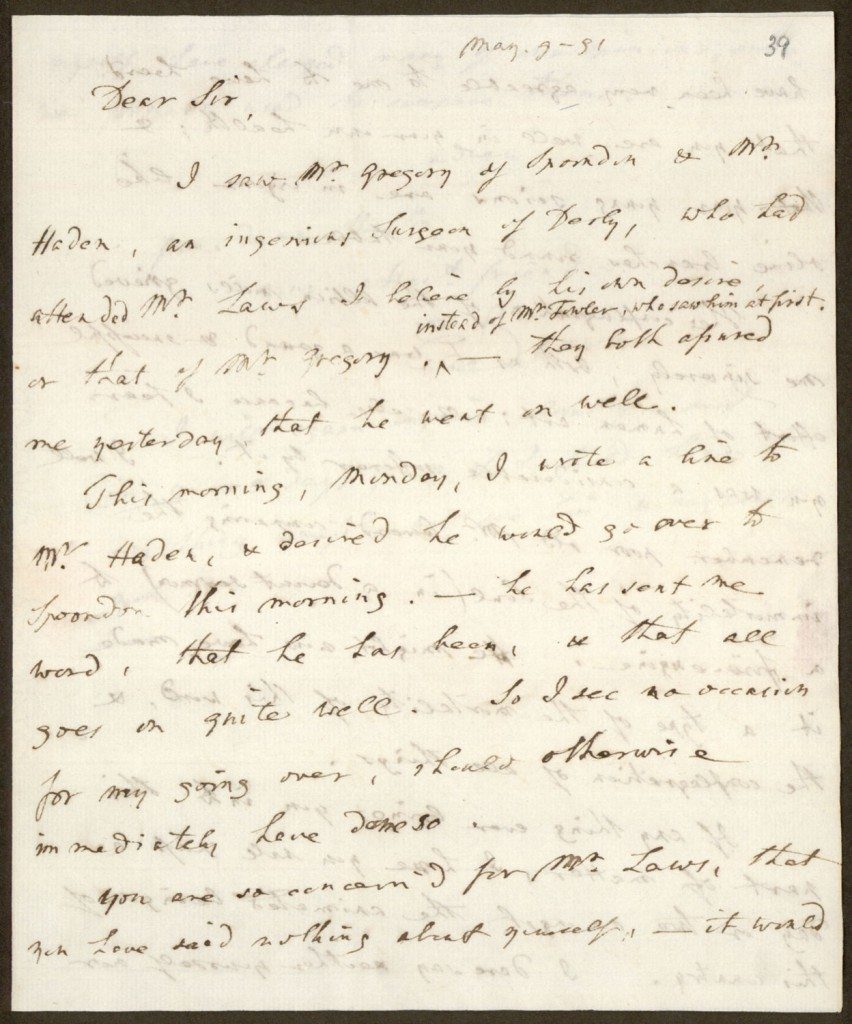 May. 9 - 91
39
Dear Sir,
I saw Mr. Gregory of Spondon & Mr.
Haden, an ingenious Surgeon of Derby, who had
attended Mr. Laws I believe by his own desire,
instead of Mr. Fowler, who saw him at first.
or that of Mr. Gregory . ^ — they both assured
me yesterday, that he went on well.
This morning, Monday, I write a line to
Mr. Haden, & desired he would go over to
Spoondon this morning. — he has sent me
word, that he has been, & that all
goes on quite well. So I see no occasion
for my going over, should otherwise
immediately have done so.
You are so concern'd for Mr. Laws, that
you have said nothing about yourself, — it would